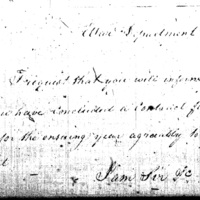 War Department
I request that you will inform
have concluded a contract f
for the ensuing year agreeably to
I am Sir &c